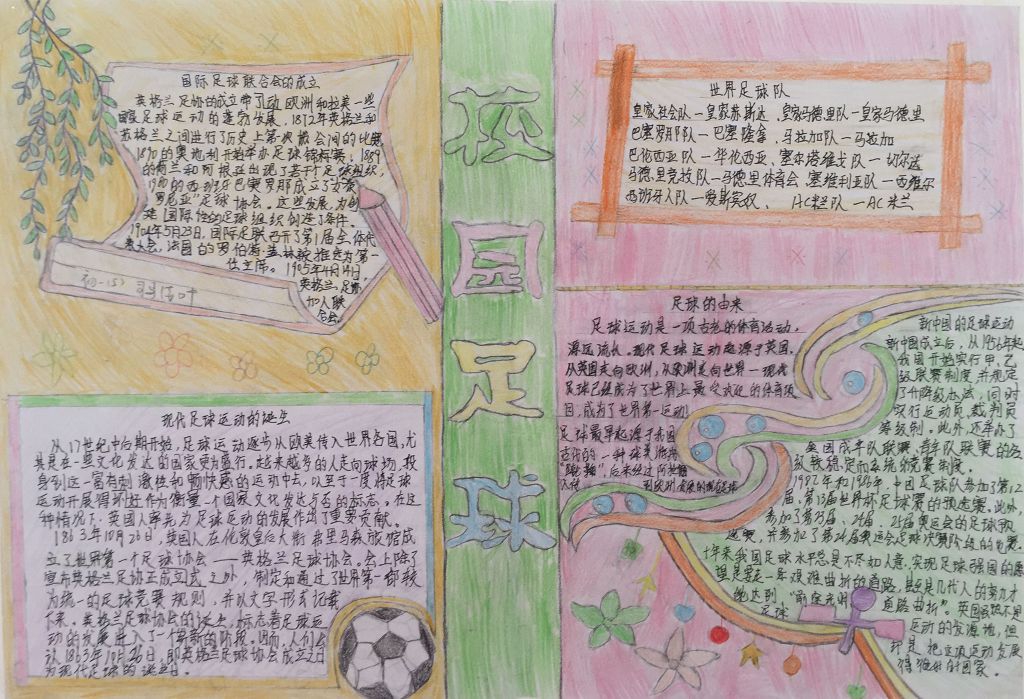 国际足球联合会的成立
英格兰足协的成立带了动欧洲和拉美一些
国家足球运动的蓬勃发展，1872年英格兰和
苏格兰之间进行了历史上第一次协会间的比赛
1890年奥地利开始举办足球锦标赛；1889
的荷兰和阿根廷出现了若干个足球组织，
1900的西班牙巴塞罗那成立了加泰
罗尼亚"足球协会。这些发展，为创
建国际性的足球组织创造了条件。
1904年5月23日，国际足联召开了第1届全体代
表大会，法国的罗伯特·盖林被推选为第一
任主席。1905年4月14日，
英格兰足协
加入联
合会。
初一(5)
校园足球
世界足球队
皇家社会队—皇家苏斯达、皇家马德里队—皇家马德里
巴塞罗那队—巴塞隆拿、马拉加队—马拉加
巴伦西亚队—华伦西亚、塞尔塔维戈队—切尔达
马德里竞技队—马德里体育会、塞维利亚队—西维尔
西班牙人队—爱斯宾奴、 AC米兰队—AC米兰
现代足球运动的诞生
从17世纪中后期开始，足球运动逐步从欧美传入世界各国，尤
其是在一些文化发达的国家更为盛行。越来越多的人走向球场，投
身到这一富有刺激性和畅快感的运动中去，以至于一度将足球
运动开展得到还作为衡量一个国家文化发达与否的标志。在这
种情况下，英国人率先为足球运动的发展作出了重要贡献。
1863年10月26日，英国人在伦敦皇后大街弗里马森旅馆成
立了世界第一个足球协会——英格兰足球协会。会上除了
宣布英格兰足协正式成立之外，制定和通过了世界第一部较
为统一的足球竞赛规则，并以文字形式记载
下来。英格兰足球协会的诞生，标志着足球运
动的发展进入了一个崭新的阶段。因而，人们公
认1863年10月26日，即英格兰足球协会成立之日
为现代足球的诞生日。
足球的由来
足球运动是一项古老的体育活动，
源远流长。现代足球运动起源于英国，
从英国走向欧洲，从欧洲走向世界—现代
足球已经成为了世界上最受欢迎的体育项
目，成为了世界第一运动。
足球最早起源于我国
古代的一种球类游戏
"蹴鞠"，后来经过阿拉伯
人传 到欧洲，发展成现代足球
新中国的足球运动
新中国成立后，从1956年起
我国开始实行甲、乙
级联赛制度，并规定
了升降级办法，同时
实行运动员、裁判员
等级制。此外，还举办了
全国成年队联赛、青年队联赛的各
级较稳定而系统的竞赛制度。
1982年和1986年，中国足球队参加了第12
届、第13届世界杯足球赛的预选赛。此外，
参加了第23届、24届、25届奥运会的足球预
选赛，并参加了第24届奥运会足球决赛阶段的比赛。
十年来我国足球水平总是不尽如人意，实现足球强国的愿
望是要走一条艰难曲折的道路，甚至是几代人的努力才
能达到，"前途光明 道路曲折"。英国虽然不是
足球 运动的发源地，但
却是把这项运动发展
得很好的国家。